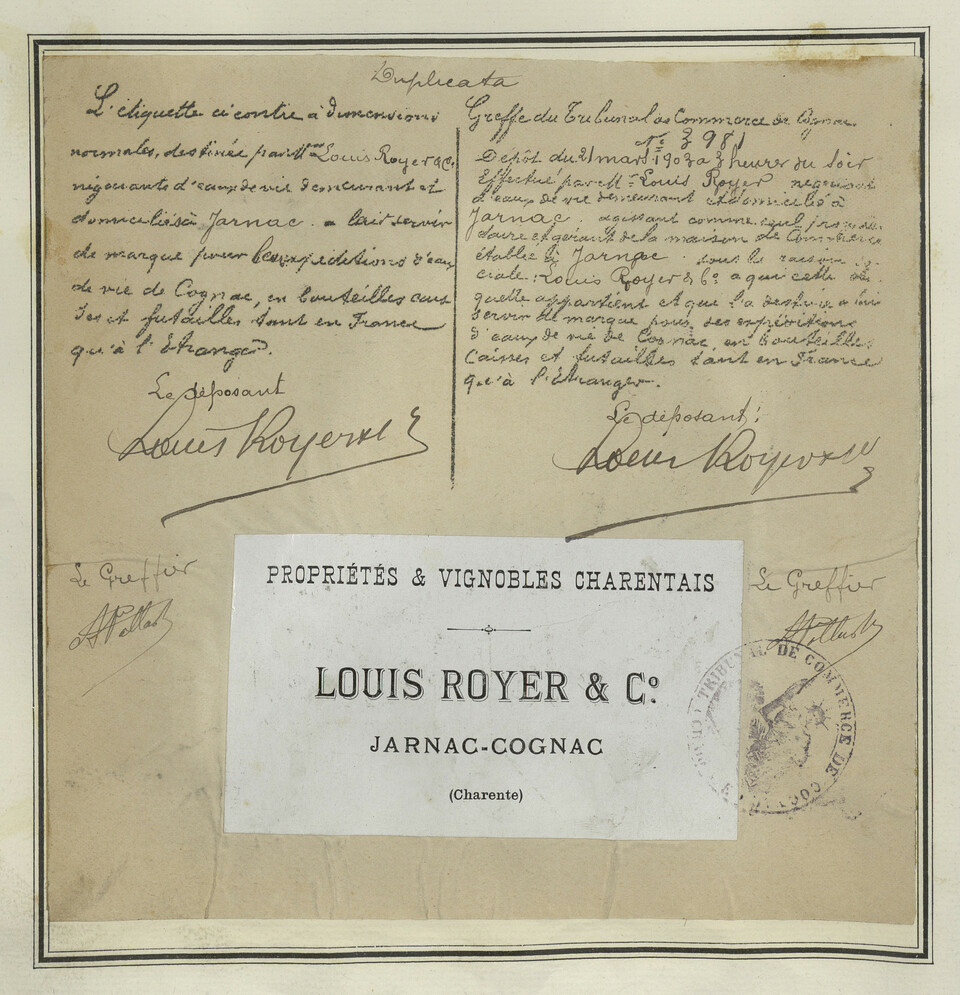 Duplicata
L'étiquette ci contre à dimensions
normales, destinée par Mrs Louis Royer & Co.
négociants d'eaux de vie demeurant et
domiciliés à Jarnac. à lair servir
de marque pour les expéditions d'eaux
de vie de Cognac, en bouteilles cais
ses et futailles tant en France
qu'à l'Etranger.
Le déposant
Louis Royer & Co
Le Greffier
Greffe du Tribunal de Commerce de Cognac.
No 3981
Dépôt du 21 mars 1903 à 3 heures du soir
Effectué par Mr Louis Royer négociant
d'eaux de vie demeurant et domicilié à
Jarnac. agissant comme seul propriétaire
et gérant de la maison de Commerce
établie à Jarnac sous la raison so-
ciale: Louis Royer & Co. a qui cette éti
quette appartient et que l'a destinée a lui
servir de marque pour ses expéditions
d'eaux de vie de Cognac, en bouteilles
Caisses et futailles tant en France
qu'à l'Etranger.
Le déposant:
Louis Royer & Co
Le Greffier
PROPRIÉTÉS & VIGNOBLES CHARENTAIS
LOUIS ROYER & Co.
JARNAC-COGNAC
(Charente)
TRIBUNAL DE COMMERCE DE COGNAC